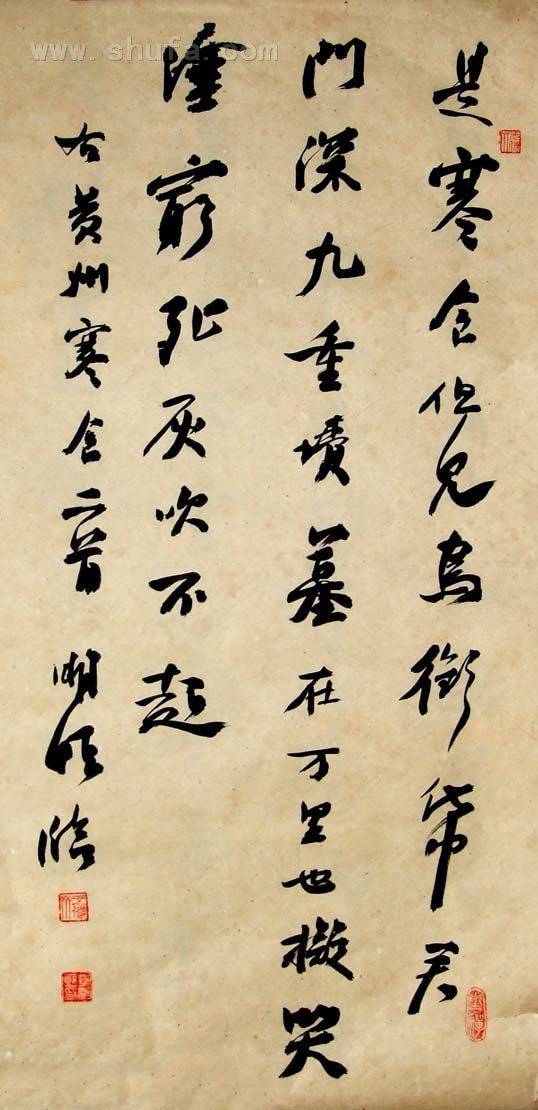 是寒食但見烏銜帋君
門深九重墳墓在万里也擬哭
塗窮死灰吹不起
右黄州寒食二首
臨
www.shufa.com